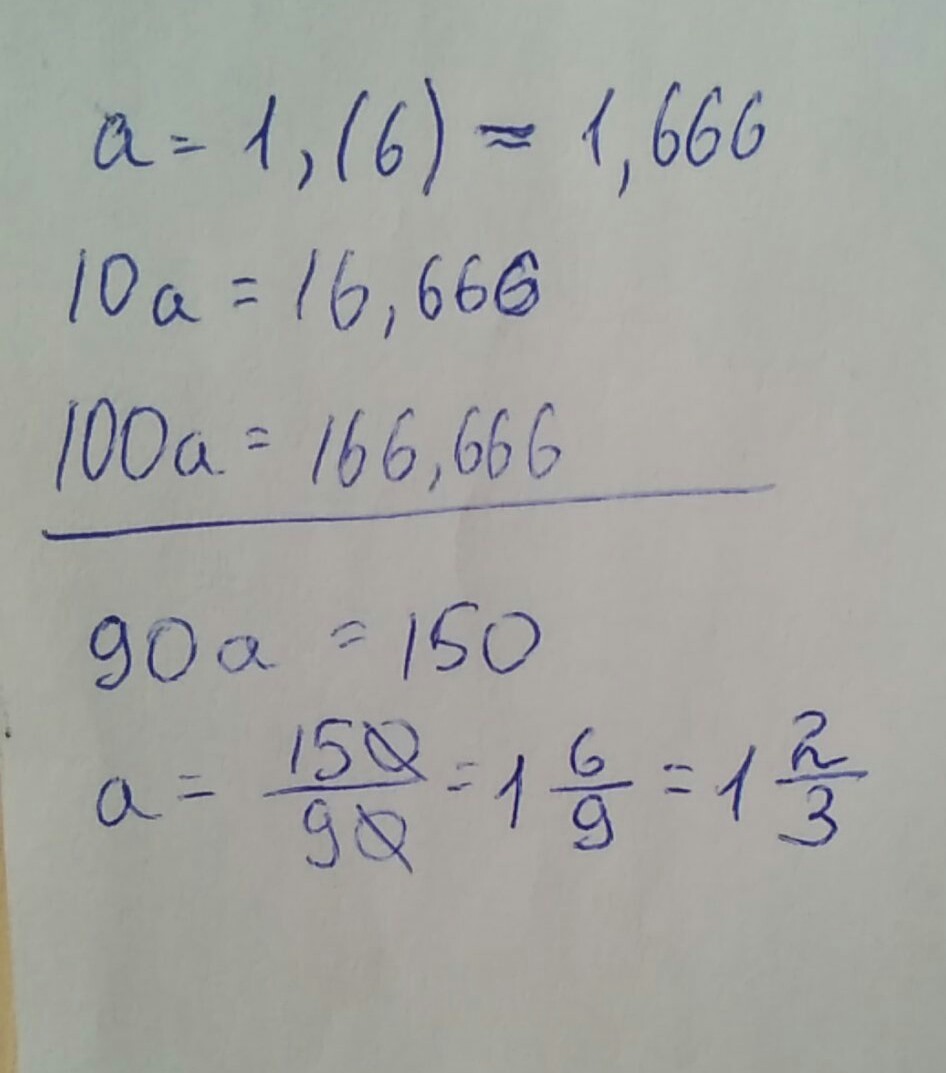 a = 1,(6) ≈ 1,666
10a = 16,666
100a = 166,666
90a = 150
a = 150/90 = 1 6/9 = 1 2/3